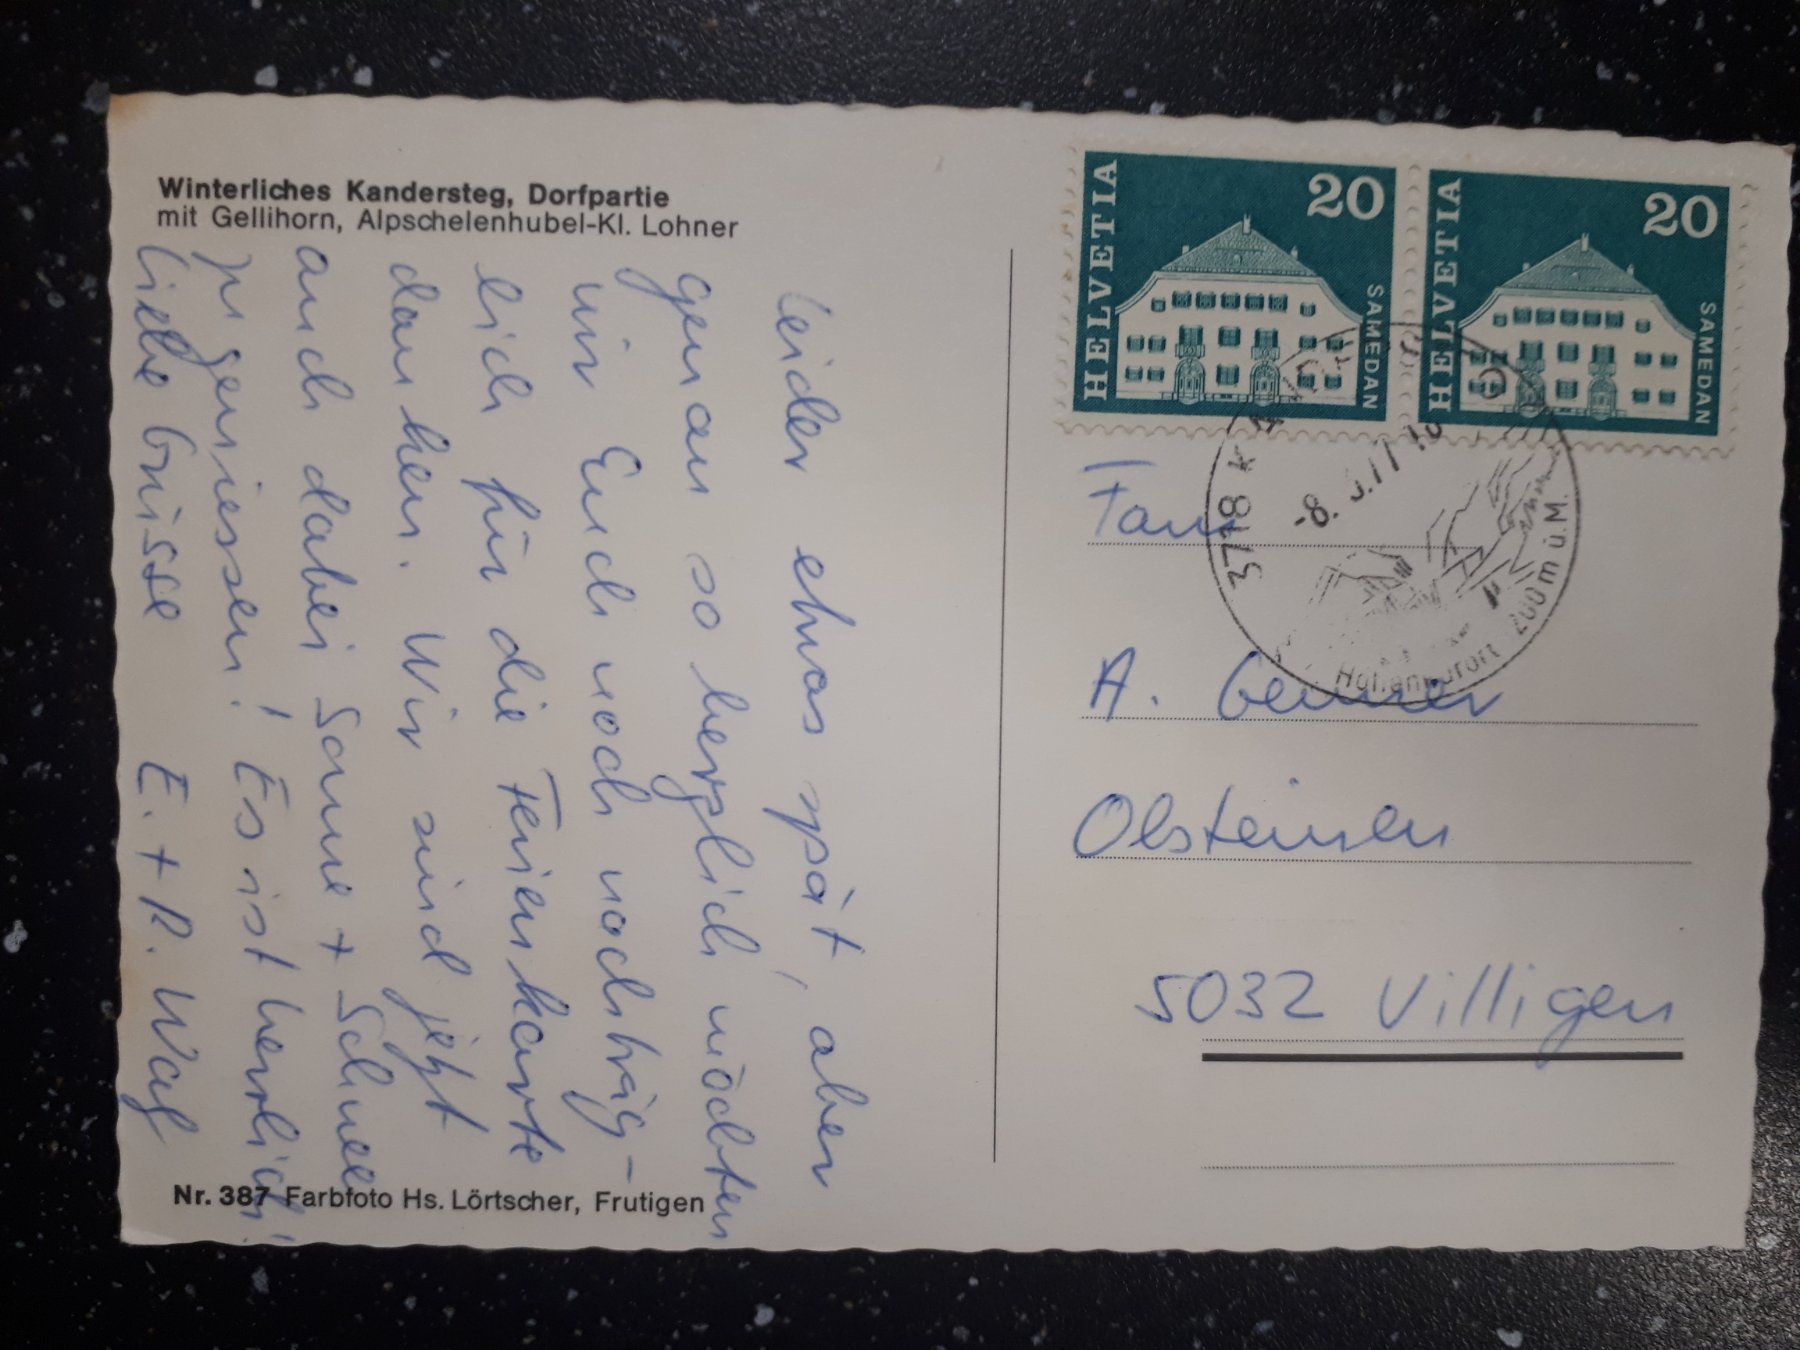 Winterliches Kandersteg, Dorfpartie
mit Gellihorn, Alpschelenhubel-Kl. Lohner
Leider etwas spät, aber
genau so herzlich möchten
wir Euch noch nachträg-
lich für die Ferienkarte
danken. Wir sind jetzt
auch dabei Sonne + Schnee
zu geniessen! Es ist herrlich!
Liebe Grüsse E. + R.
Nr. 387 Farbfoto Hs. Lörtscher, Frutigen
HELVETIA 20 SAMEDAN
HELVETIA 20 SAMEDAN
3718
-8. 3.77
Höhenkurort 1200 m ü.M.
Fam
A.
Olsteinen
5032 Villigen